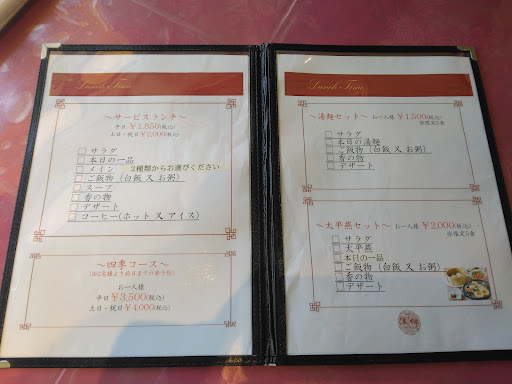 Lunch Time
～サービスランチ～
平日 ￥1,850(税込)
土日・祝日 ￥2,000(税込)
□ サラダ
□ 本日の一品
□ メイン 2種類からお選びください
□ ご飯物 (白飯 又 お粥)
□ スープ
□ 香の物
□ デザート
□ コーヒー(ホット 又 アイス)
～四季コース～
お一人様
平日 ￥3,500(税込)
土日・祝日 ￥4,000(税込)
Lunch Time
～湯麺セット～ お一人様 ￥1,500(税込)
※限定5食
□ サラダ
□ 本日の湯麺
□ ご飯物 (白飯 又 お粥)
□ 香の物
□ デザート
～太平燕セット～ お一人様 ￥2,000(税込)
※限定5食
□ サラダ
□ 太平燕
□ 本日の一品
□ ご飯物 (白飯 又 お粥)
□ 香の物
□ デザート